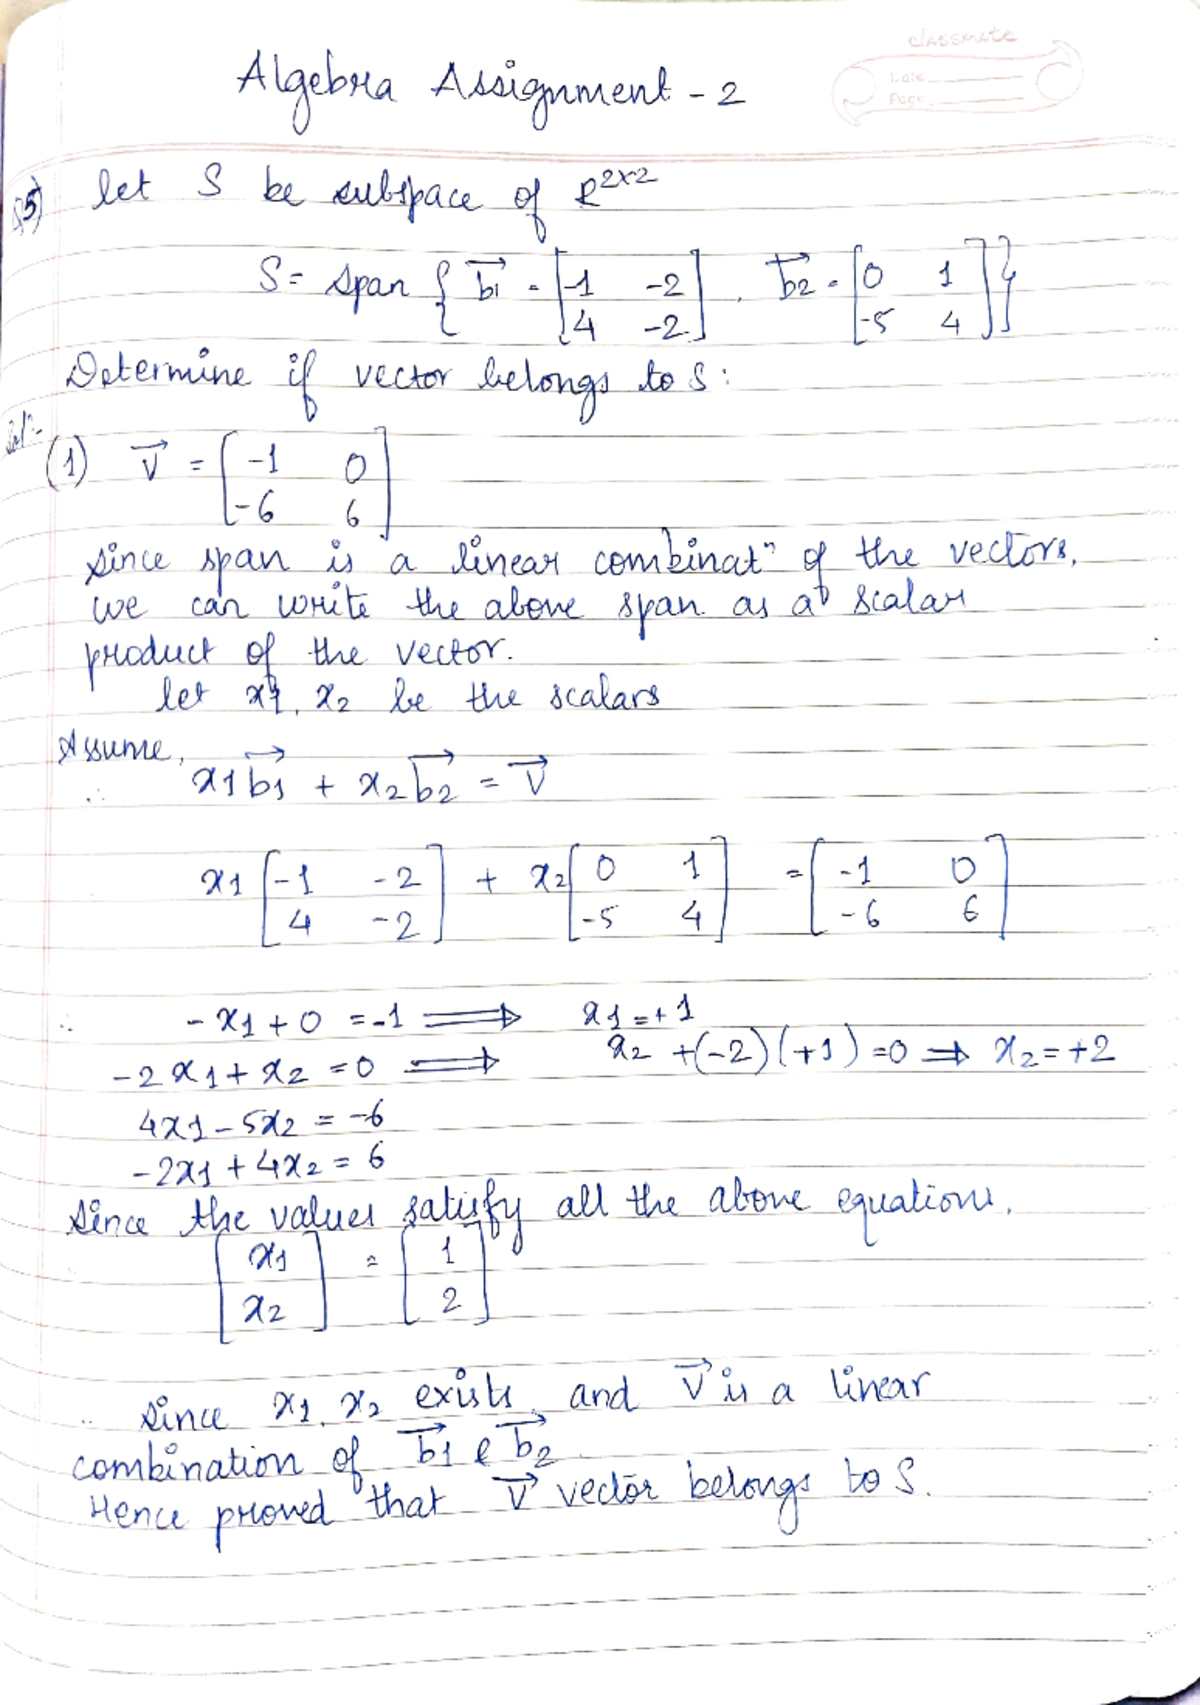 classmate
Date
Page
Algebra Assignment - 2
Q5) let S be subspace of R^2x2
S = span { b1 = [-1 -2 , b2 = [0 1 ] }
4 -2] -5 4
Determine if vector belongs to S :
Sol^n:-
(1) V = [-1 0
-6 6]
Since span is a linear combinat^n of the vectors,
we can write the above span as a scalar
product of the vector.
let x1, x2 be the scalars
Assume,
∴ x1 b1 + x2 b2 = V
x1 [-1 -2] + x2 [0 1] = [-1 0]
4 -2 -5 4 -6 6
∴ -x1 + 0 = -1 ⟹ x1 = +1
-2x1 + x2 = 0 ⟹ x2 + (-2)(+1) = 0 ⟹ x2 = +2
4x1 - 5x2 = -6
-2x1 + 4x2 = 6
Since the values satisfy all the above equations,
[x1 = [1
x2] 2]
∴ Since x1, x2 exists, and V is a linear
combination of b1 & b2
Hence proved that V vector belongs to S.